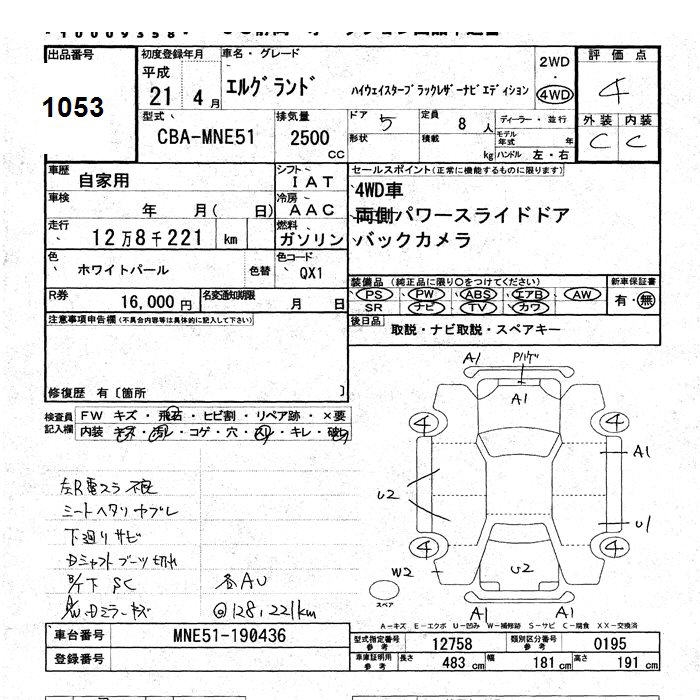 出品番号
1053
初度登録年月 車名・グレード
平成
21 4月
エルグランド
ハイウェイスターブラックレザーナビエディション
2WD
・
4WD
評価点
4
外装 内装
C C
型式
CBA-MNE51
排気量
2500
cc
ドア 5
形状
定員 8人
積載 kg
ディーラー・並行
モデル年式 年
ハンドル 左・右
車歴
自家用
シフト
IAT
車検
年 月( 日)
冷房
AAC
走行
12万8千221 km
燃料
ガソリン
色
ホワイトパール
色替
色コード
QX1
R券
16,000円
名変通知期限
月 日
セールスポイント(正常に機能するものに限ります)
4WD車
両側パワースライドドア
バックカメラ
装備品(純正品に限り○をつけてください)
PS PW ABS エアB AW
SR ナビ TV カワ
新車保証書
有・無
後日品
取説・ナビ取説・スペアキー
注意事項申告欄(不具合内容等は具体的に記入して下さい)
修復歴 有〔箇所 〕
検査員
記入欄
FW キズ・飛石・ヒビ割・リペア跡・×要
内装 キズ・汚レ・コゲ・穴・スレ・キレ・破レ
左R電スラ不良
シートヘタリヤブレ
下廻りサビ
Dシャフトブーツ切れ
下 SC
各AU
Dミラーキズ
@128,221km
A1
A1
4
4
A1
U2
U1
4
4
W2
U2
A1
A1
スペア
A-キズ E-エクボ U-凹み W-補修跡 S-サビ C-腐食 XX-交換済
車台番号
MNE51-190436
登録番号
型式指定番号
参考
12758
類別区分番号
参考
0195
車庫証明用
参考
長さ 483 cm 幅 181 cm 高さ 191 cm